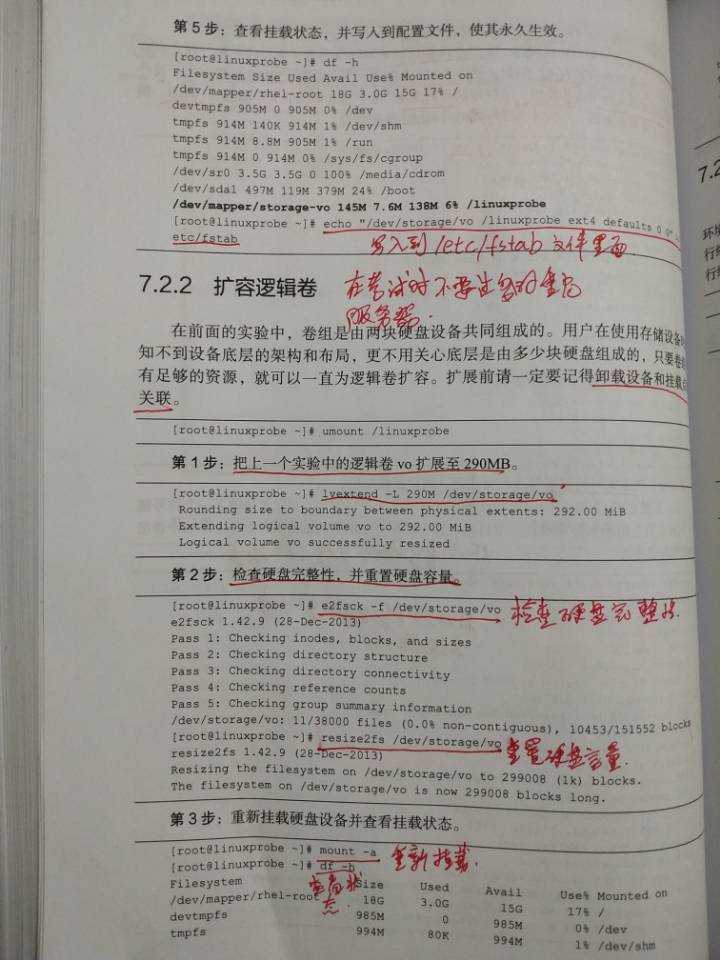 第5步：查看挂载状态，并写入到配置文件，使其永久生效。
[root@linuxprobe ~]# df -h
Filesystem Size Used Avail Use% Mounted on
/dev/mapper/rhel-root 18G 3.0G 15G 17% /
devtmpfs 905M 0 905M 0% /dev
tmpfs 914M 140K 914M 1% /dev/shm
tmpfs 914M 8.8M 905M 1% /run
tmpfs 914M 0 914M 0% /sys/fs/cgroup
/dev/sr0 3.5G 3.5G 0 100% /media/cdrom
/dev/sda1 497M 119M 379M 24% /boot
/dev/mapper/storage-vo 145M 7.6M 138M 6% /linuxprobe
[root@linuxprobe ~]# echo "/dev/storage/vo /linuxprobe ext4 defaults 0 0"
etc/fstab
写入到/etc/fstab 文件里面
7.2.2 扩容逻辑卷
在考试时不要
服务器
在前面的实验中，卷组是由两块硬盘设备共同组成的。用户在使用存储设备时
知不到设备底层的架构和布局，更不用关心底层是由多少块硬盘组成的，只要卷
有足够的资源，就可以一直为逻辑卷扩容。扩展前请一定要记得卸载设备和挂载点
关联。
[root@linuxprobe ~]# umount /linuxprobe
第1步：把上一个实验中的逻辑卷 vo 扩展至 290MB。
[root@linuxprobe ~]# lvextend -L 290M /dev/storage/vo
Rounding size to boundary between physical extents: 292.00 MiB
Extending logical volume vo to 292.00 MiB
Logical volume vo successfully resized
第2步：检查硬盘完整性，并重置硬盘容量。
[root@linuxprobe ~]# e2fsck -f /dev/storage/vo 检查硬盘完整性
e2fsck 1.42.9 (28-Dec-2013)
Pass 1: Checking inodes, blocks, and sizes
Pass 2: Checking directory structure
Pass 3: Checking directory connectivity
Pass 4: Checking reference counts
Pass 5: Checking group summary information
/dev/storage/vo: 11/38000 files (0.0% non-contiguous), 10453/151552 blocks
[root@linuxprobe ~]# resize2fs /dev/storage/vo 重置硬盘容量.
resize2fs 1.42.9 (28-Dec-2013)
Resizing the filesystem on /dev/storage/vo to 299008 (1k) blocks.
The filesystem on /dev/storage/vo is now 299008 blocks long.
第3步：重新挂载硬盘设备并查看挂载状态。
[root@linuxprobe ~]# mount -a 重新挂载.
[root@linuxprobe ~]# df -h
查看状态
Filesystem Size Used Avail Use% Mounted on
/dev/mapper/rhel-root 18G 3.0G 15G 17% /
devtmpfs 985M 0 985M 0% /dev
tmpfs 994M 80K 994M 1% /dev/shm
7.2
环境
行
行